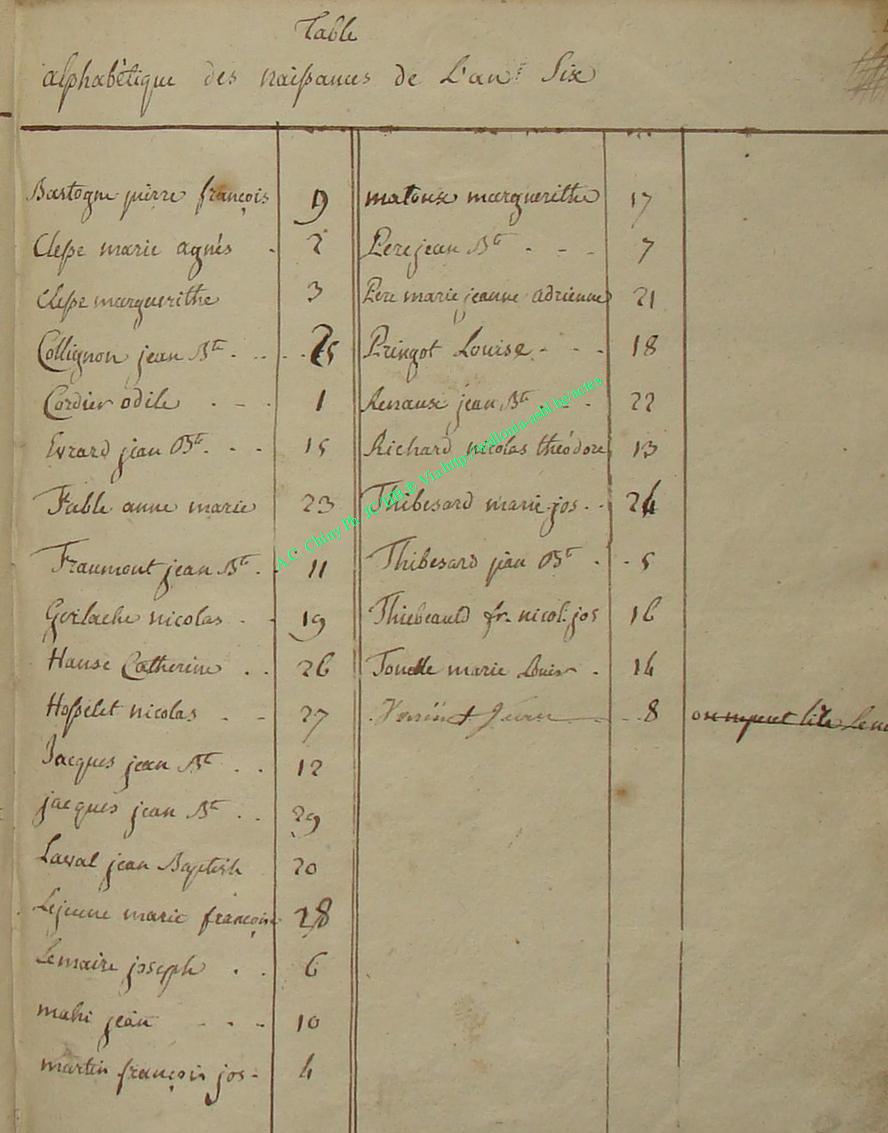 Table
alphabétique des naissances de L'an Six
Bastogne pierre françois 9
Clesse marie agnès - 2
Clesse marguerithe 3
Collignon jean Bte - - - 25
Cordier odile - - - 1
Evrard jean Bte - - 15
Fable anne marie 23
Fraumont jean Bte - 11
Gerlache nicolas - - 19
Hanse Catherine - - 26
Hosselet nicolas - - 27
Jacques jean Bte - - 12
jacques jean Bte - - 29
Laval jean Baptiste 20
Lejeune marie françoise 28
Lemaire joseph - - 6
mahi jean - - - 10
martin françois jos - 4
matoux marguerithe 17
Pere jean Bte - - - 7
Pere marie jeanne adrienne 21
Pringot Louise - - - 18
Renaux jean Bte - - - 22
Richard nicolas théodore 13
Thibesard marie jos - - 24
Thibesard jean Bte - - 5
Thiebeauld fr. nicol. jos 16
Tonelle marie Louise - 14
8
A.C. Chiny Ph. JCAIR® Via http://ardlouia-asbl.be/actes